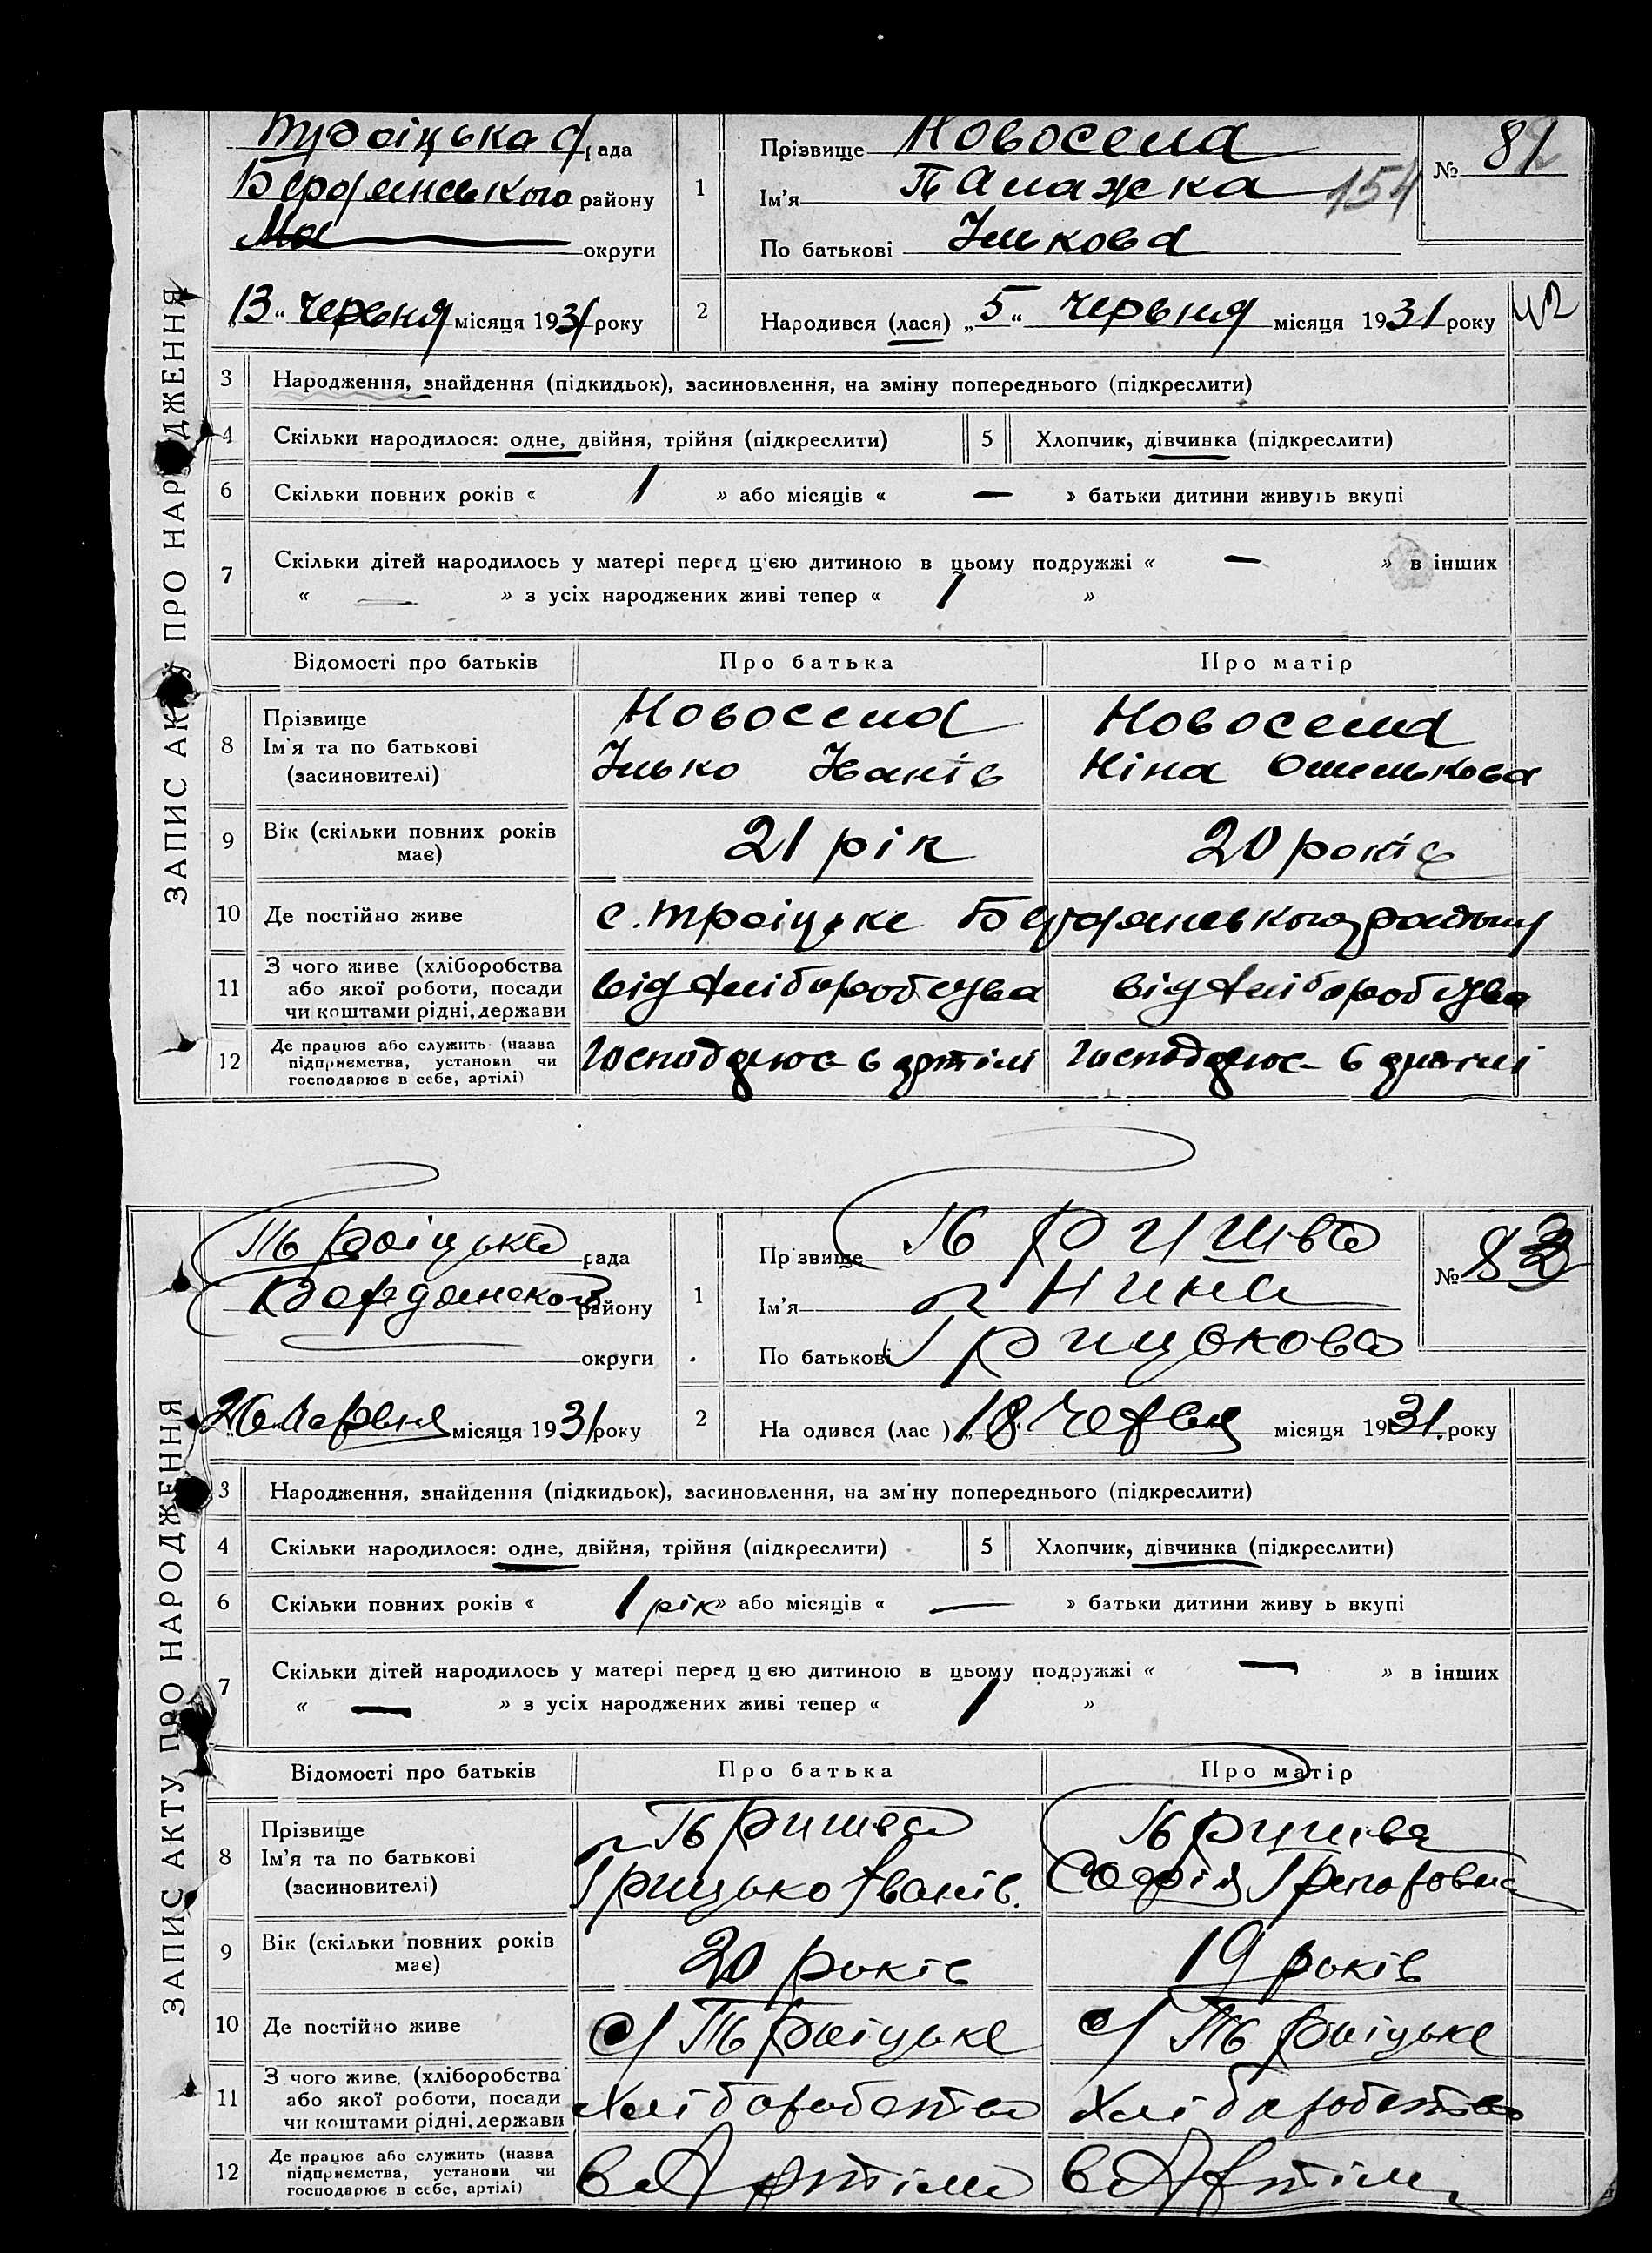 ЗАПИС АКТУ ПРО НАРОДЖЕННЯ
Троіцька рада
Бердянського району
округи
13 червня місяця 1931 року
1
Прізвище Новосела
Ім'я Палажка
По батькові Ількова
№ 81
154
2
Народився (лася) „5" червня місяця 1931 року
3 Народження, знайдення (підкидьок), засиновлення, на зміну попереднього (підкреслити)
4 Скільки народилося: одне, двійня, трійня (підкреслити) 5 Хлопчик, дівчинка (підкреслити)
6 Скільки повних років « 1 » або місяців « — » батьки дитини живуть вкупі
7 Скільки дітей народилось у матері перед цією дитиною в цьому подружжі « — » в інших
« — » з усіх народжених живі тепер « 1 »
Відомості про батьків Про батька Про матір
8 Прізвище
Ім'я та по батькові
(засиновителі)
Новосела
Ілько Іванів
Новосела
Ніна Омелькова
9 Вік (скільки повних років має) 21 рік 20 років
10 Де постійно живе с. Троіцьке Бердянського району
11 З чого живе (хліборобства
або якої роботи, посади
чи коштами рідні, держави
від хліборобства від хліборобства
12 Де працює або служить (назва
підприємства, установи чи
господарює в себе, артілі)
Господарює в артілі Господарює в артілі
ЗАПИС АКТУ ПРО НАРОДЖЕННЯ
Троіцька рада
Бердянского району
округи
26 Червня місяця 1931 року
1
Пр звище Тришва
Ім'я Нина
По батькові Грицькова
№ 83
2
На одився (лас ) „18" Червня місяця 1931. року
3 Народження, знайдення (підкидьок), засиновлення, на зм ну попереднього (підкреслити)
4 Скільки народилося: одне, двійня, трійня (підкреслити) 5 Хлопчик, дівчинка (підкреслити)
6 Скільки повних років « 1 рік » або місяців « — » батьки дитини живу ь вкупі
7 Скільки дітей народилось у матері перед ц єю дитиною в цьому подружжі « — » в інших
« — » з усіх народжених живі тепер « 1 »
Відомості про батьків Про батька Про матір
8 Прізвище
Ім'я та по батькові
(засиновителі)
Тришва
Грицько Іванів.
Тришва
Софія Григоровна
9 Вік (скільки повних років має) 20 років 19 років
10 Де постійно живе с/ Троіцьке с/ Троіцьке
11 З чого живе, (хліборобства
або якої роботи, посади
чи коштами рідні, держави
Хліборобство Хліборобство
12 Де працює або служить (назва
підприємства, установи чи
господарює в себе, артілі)
в Артілі в Артілі